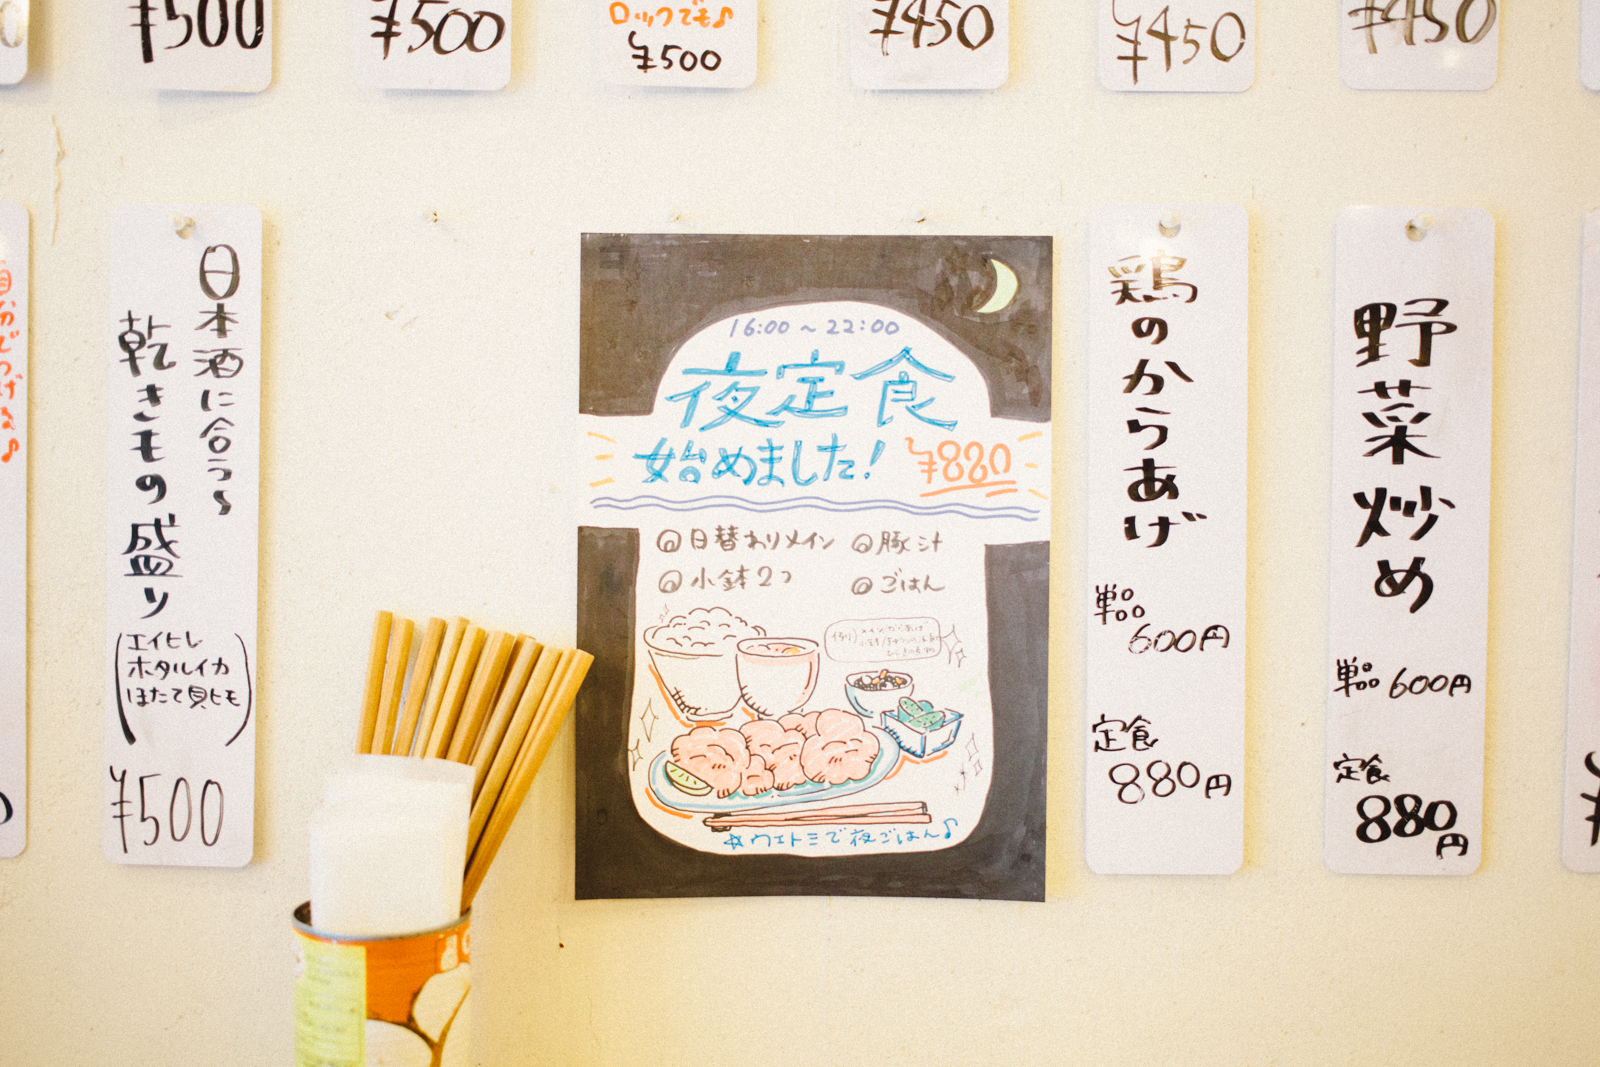 ¥500
¥500
ロックでも♪
¥500
¥450
¥450
¥450
日本酒に合う〜
乾きもの盛り
(エイヒレ
ホタルイカ
ほたて貝ヒモ)
¥500
16:00〜22:00
夜定食
始めました! ¥880
◎日替わりメイン ◎豚汁
◎小鉢2つ ◎ごはん
例) メイン/からあげ
☆ウエトミで夜ごはん♪
鶏のからあげ
単品
600円
定食
880円
野菜炒め
単品 600円
定食
880円